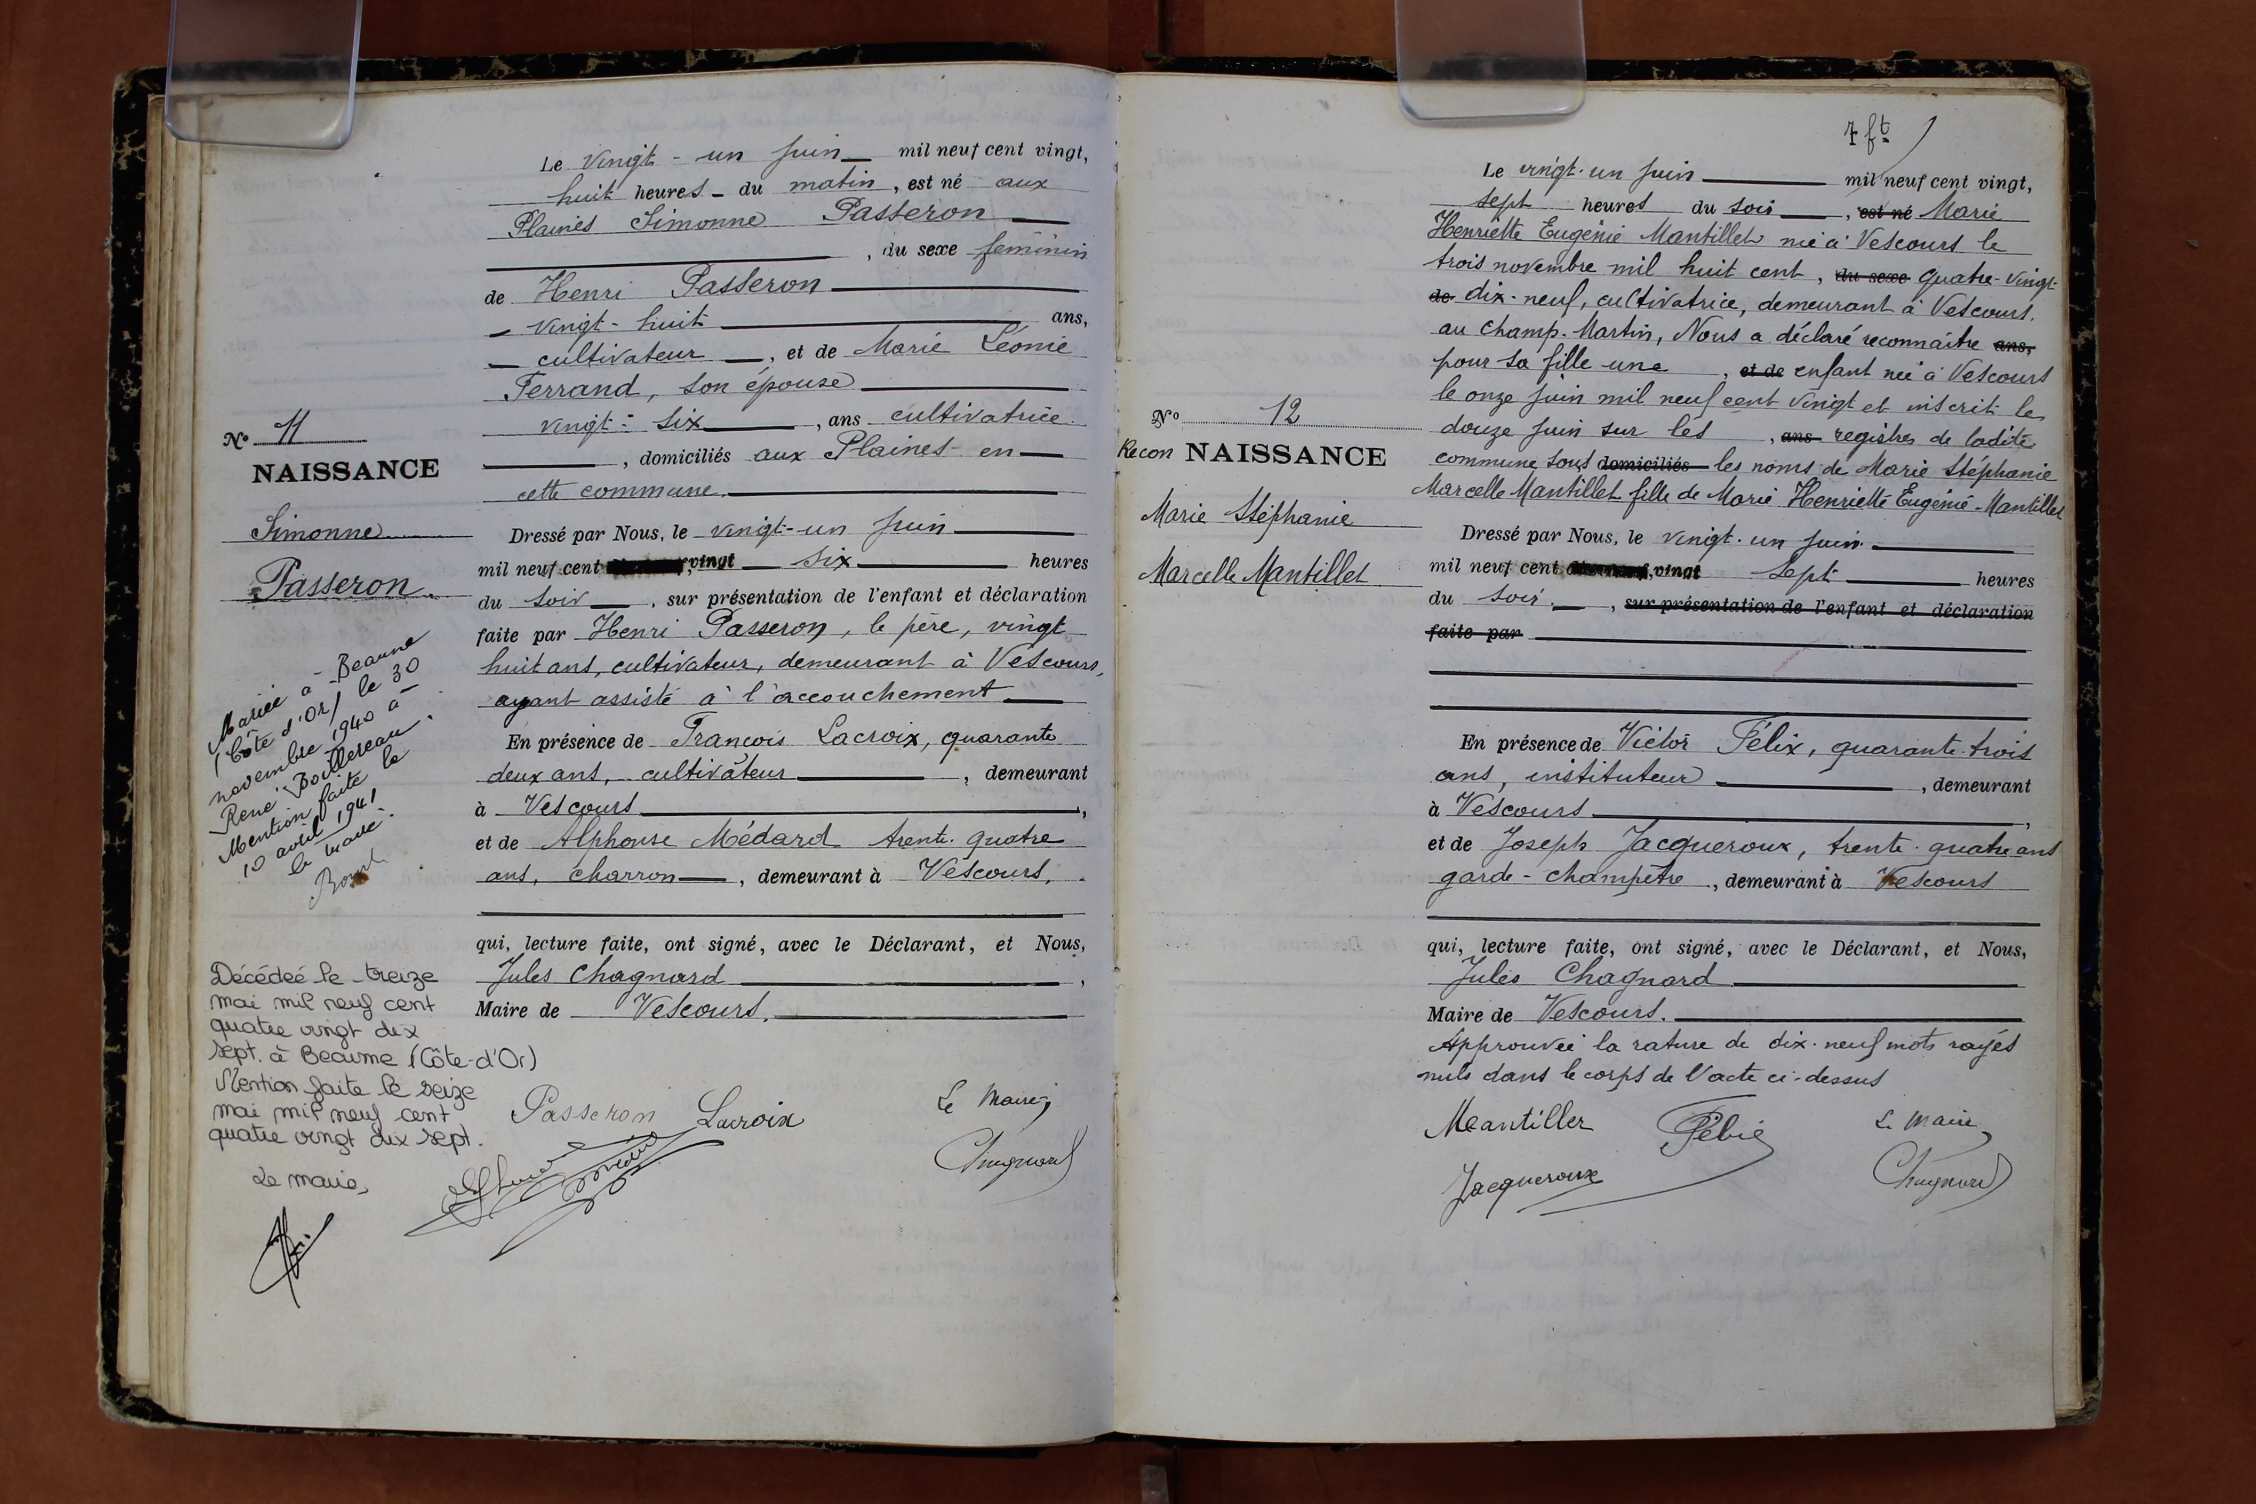 Le vingt-un juin mil neuf cent vingt,
huit heures du matin, est né aux
Plaines Simonne Passeron
, du sexe féminin
de Henri Passeron
vingt-huit ans,
cultivateur, et de Marie Léonie
Ferrand, son épouse
vingt-six, ans cultivatrice
, domiciliés aux Plaines en
cette commune.
Nº 11
NAISSANCE
Simonne
Passeron
Dressé par Nous, le vingt-un juin
mil neuf cent vingt six heures
du soir, sur présentation de l'enfant et déclaration
faite par Henri Passeron, le père, vingt
huit ans, cultivateur, demeurant à Vescours,
ayant assisté à l'accouchement
En présence de François Lacroix, quarante
deux ans, cultivateur, demeurant
à Vescours,
et de Alphonse Médard trente-quatre
ans, charron, demeurant à Vescours.
qui, lecture faite, ont signé, avec le Déclarant, et Nous,
Jules Chagnard,
Maire de Vescours.
Mariée à Beaune
(Côte d'Or) le 30
novembre 1940 à
René Boillereau.
Mention faite le
10 avril 1941
Le maire.
Décédée le treize
mai mil neuf cent
quatre vingt dix
sept. à Beaune (Côte-d'Or)
Mention faite le seize
mai mil neuf cent
quatre vingt dix sept.
Le maire,
Passeron Lacroix Le Maire,
Chagnard
7 ft
Le vingt-un juin mil neuf cent vingt,
sept heures du soir, est né Marie
Henriette Eugénie Mantillet née à Vescours le
trois novembre mil huit cent, du sexe quatre-vingt-
de dix-neuf, cultivatrice, demeurant à Vescours.
au Champ-Martin, Nous a déclaré reconnaître ans,
pour sa fille une, et de enfant née à Vescours
le onze juin mil neuf cent vingt et inscrit le
douze juin sur les, ans registres de ladite
commune sous domiciliés les noms de Marie Stéphanie
Marcelle Mantillet fille de Marie Henriette Eugénie Mantillet
Nº 12
Recon NAISSANCE
Marie Stéphanie
Marcelle Mantillet
Dressé par Nous, le vingt-un juin
mil neuf cent vingt sept heures
du soir, sur présentation de l'enfant et déclaration
faite par
En présence de Victor Félix, quarante-trois
ans, instituteur, demeurant
à Vescours,
et de Joseph Jacqueroux, trente-quatre ans
garde-champêtre, demeurant à Vescours
qui, lecture faite, ont signé, avec le Déclarant, et Nous,
Jules Chagnard
Maire de Vescours.
Approuvée la rature de dix-neuf mots rayés
nuls dans le corps de l'acte ci-dessus
Mantiller Félix Le Maire
Jacqueroux Chagnard